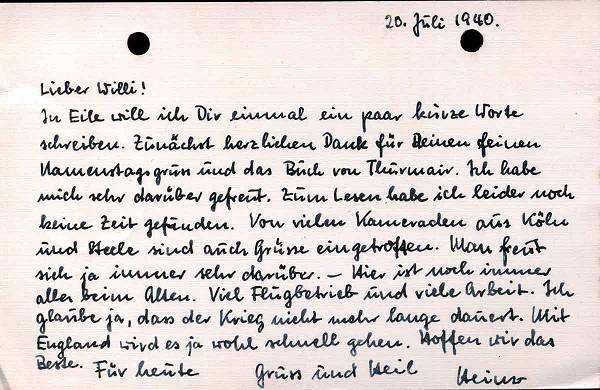 20. Juli 1940.
Lieber Willi!
In Eile will ich Dir einmal ein paar kurze Worte
schreiben. Zunächst herzlichen Dank für Deinen feinen
Namenstagsgruss und das Buch von Thurmair. Ich habe
mich sehr darüber gefreut. Zum Lesen habe ich leider noch
keine Zeit gefunden. Von vielen Kameraden aus Köln
und Steele sind auch Grüsse eingetroffen. Man freut
sich ja immer sehr darüber. – Hier ist noch immer
alles beim Alten. Viel Flugbetrieb und viele Arbeit. Ich
glaube ja, dass der Krieg nicht mehr lange dauert. Mit
England wird es ja wohl schnell gehen. Hoffen wir das
Beste. Für heute Gruss und Heil Heino